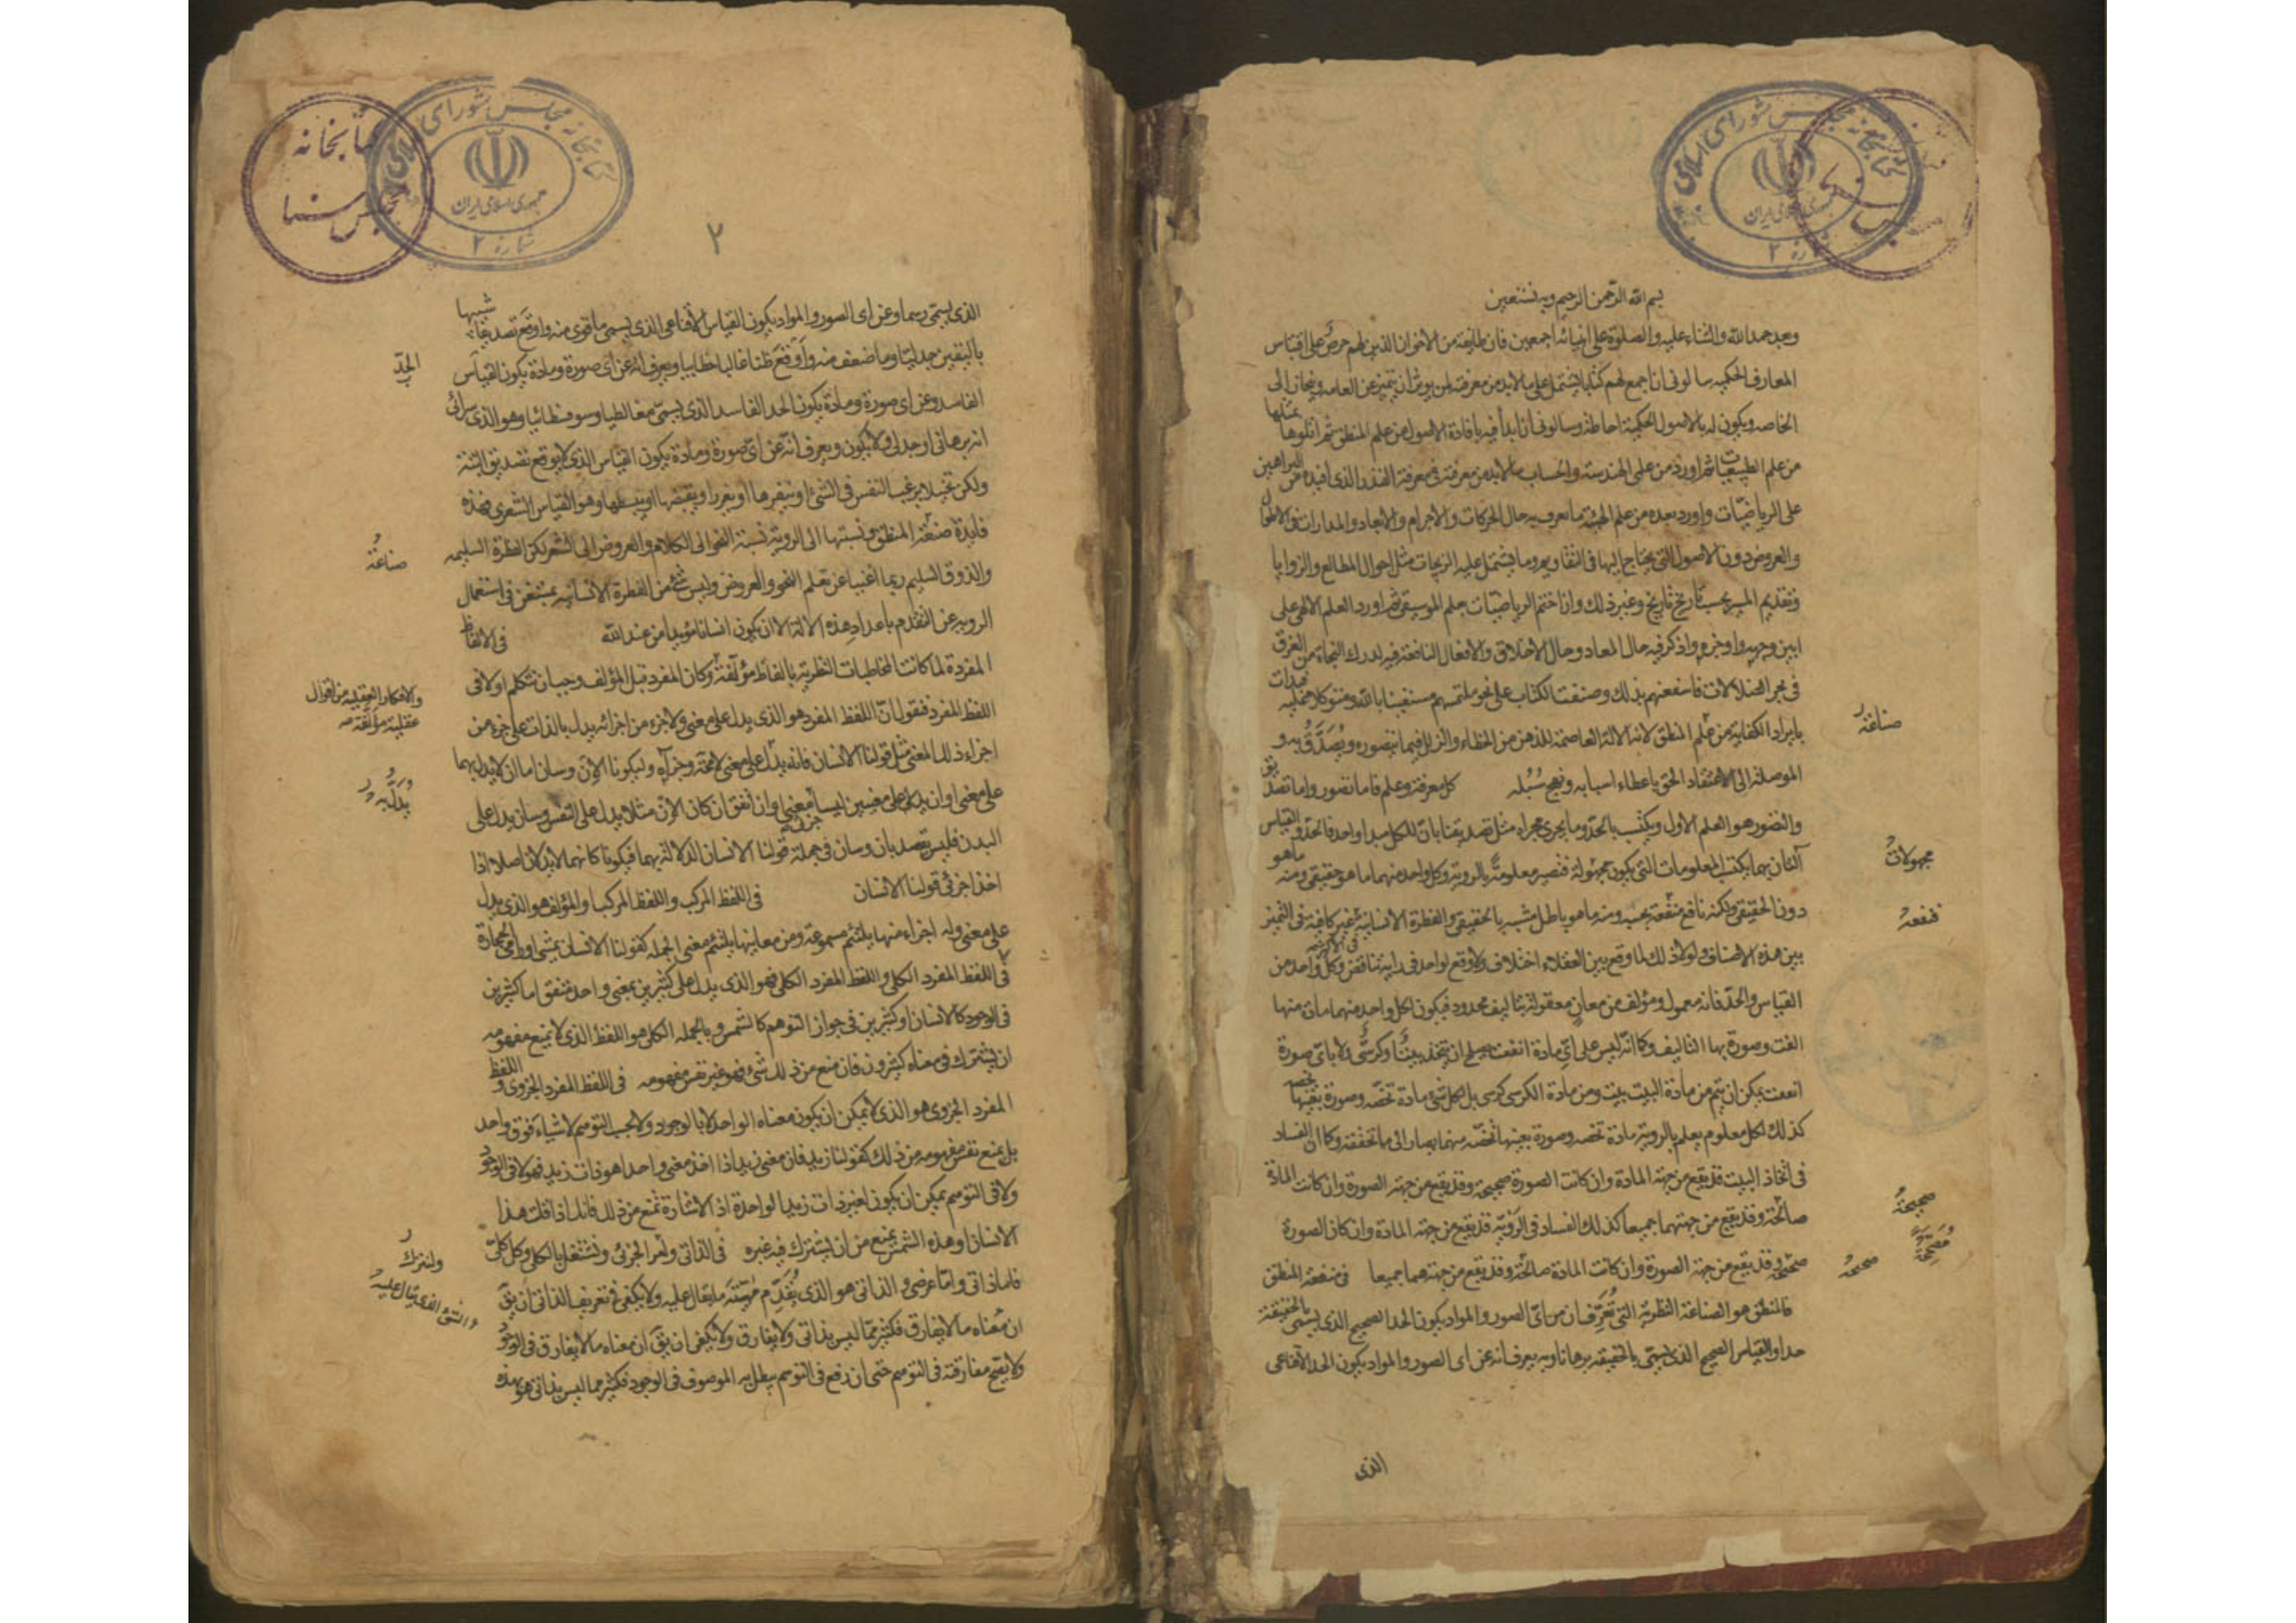 كتابخانه مجلس شورای اسلامی
جمهوری اسلامی ایران
شماره ۲
بسم الله الرحمن الرحيم وبه نستعين
وبعد حمد الله والثناء عليه والصلوة على انبيائه اجمعين فان طايفة من الاخوان الذين لهم حرص على اقتباس
المعارف الحكميه سالونى ان اجمع لهم كتابا يشتمل على ما لابد من معرفته لمن يوثر ان يتميز عن العامه وينحاز الى
الخاصه ويكون له بالاصول الحكمية احاطة وسالونى ان ابدأ فيه بافادة الاصول من علم المنطق ثم اتلوها بمثلها
من علم الطبيعيات ثم اورد من علمى الهندسة والحساب ما لابد من معرفته فى معرفة القدر الذى افيده من البراهين
على الرياضيات واورد بعده من علم الهيئة ما نعرف به حال الحركات والاجرام والابعاد والمدارات والاطوال
والعروض دون الاصول التى يحتاج اليها فى التقاويم وما يشتمل عليه الزيجات مثل احوال المطالع والزوايا
وتقديم المسير بحسب تاريخ تاريخ وغير ذلك وان اختم الرياضيات بعلم الموسيقى ثم اورد العلم الالهى على
ابين وجه واوجزه واذكر فيه حال المعاد وحال الاخلاق والافعال النافعة فيه لدرك النجاة من الغرق
فى بحر الضلالات فاسعفتهم بذلك وصنفت الكتاب على نحو ملتمسهم مستعينا بالله ومتوكلا عليه
بايراد الكفاية من علم المنطق لانه الالة العاصمة للذهن من الخطاء والزلل فيما نتصوره ويصدق به و
الموصلة الى الاعتقاد الحق باعطاء اسبابه ونهج سبله كل معرفة وعلم فاما تصور واما تصديق
والتصور هو العلم الاول ويكتسب بالحد وما يجرى مجراه مثل تصديقنا بان للكل مبدا واحد فالحد والقياس
آلتان بهما يكتسب المعلومات التى يكون مجهولة فتصير معلومة بالروية وكل واحد منهما ما هو حقيقى ومنه ما هو
دون الحقيقى ولكنه نافع منفعة بحسبه ومنه ما هو باطل مشبه بالحقيقى والفطرة الانسانية غير كافية فى التميز
بين هذه الاصناف ولولا ذلك لما وقع بين العقلاء اختلاف ولا وقع لواحد فى رايه تناقض وكل واحد من
القياس والحد فانه معمول ومؤلف من معان معقولة بتاليف محدود فيكون لكل واحد منهما مادة منها
الفت وصورة بها التاليف وكما انه ليس على اى مادة اتفقت يصلح ان يتخذ بيت او كرسى ولا باى صورة
اتفقت يمكن ان يتم من مادة البيت بيت ومن مادة الكرسى كرسى بل لكل شئ مادة تخصه وصورة بعينها تخصه
كذلك لكل معلوم يعلم بالروية مادة تخصه وصورة بعينها تخصه منهما يصار الى ما تحققه وكما ان الفساد
فى اتخاذ البيت قد يقع من جهة المادة وان كانت الصورة صحيحة وقد يقع من جهة الصورة وان كانت المادة
صالحة وقد يقع من جهتهما جميعا كذلك الفساد فى الروية قد يقع من جهة المادة وان كان الصورة
صحيحة وقد يقع من جهة الصورة وان كانت المادة صالحة وقد يقع من جهتهما جميعا فى منفعة المنطق
فالمنطق هو الصناعة النظرية التى تعرف ان من اى الصور والمواد يكون الحد الصحيح الذى يسمى بالحقيقة
حدا والقياس الصحيح الذى يسمى بالحقيقه برهانا وبه يعرف انه عن اى الصور والمواد يكون الحد الاقناعى
الذى
صناعة
مجهولات
منفعة
صحيحة
صحيحة
كتابخانه مجلس سنا
كتابخانه مجلس شورای اسلامی
جمهوری اسلامی ایران
شماره ۲
۲
الذى يسمى رسما وعن اى الصور والمواد يكون القياس الاقناعى الذى يسمى ما قوى منه واوقع تصديقا شبيها
باليقين جدليا وما ضعف منه واوقع ظنا غالبا خطابيا ويعرف انه عن اى صورة ومادة يكون القياس
الفاسد وعن اى صورة ومادة يكون الحد الفاسد الذى يسمى مغالطيا وسوفسطائيا وهو الذى يترائى
انه برهانى او جدلى ولا يكون ويعرف انه عن اى صورة ومادة يكون القياس الذى لا يوقع تصديق البتة
ولكن تخيلا يرغب النفس فى الشئ او ينفرها او يقززها او يقبضها او يبسطها وهو القياس الشعرى فهذه
فايدة صنعة المنطق ونسبتها الى الروية نسبة النحو الى الكلام والعروض الى الشعر لكن الفطرة السليمه
والذوق السليم ربما اغنيا عن تعلم النحو والعروض وليس شئ من الفطرة الانسانيه بمستغن فى استعمال
الرويه عن التقدم باعداد هذه الالة الا ان يكون انسانا مؤيدا من عند الله فى الالفاظ
المفردة لما كانت المخاطبات النظرية بالفاظ مؤلفة وكان المفرد قبل المؤلف وجب ان نتكلم اولا فى
اللفظ المفرد فنقول ان اللفظ المفرد هو الذى يدل على معنى ولا جزء من اجزائه يدل بالذات على جزء من
اجزاء ذلك المعنى مثل قولنا الانسان فانه يدل على معنى لا محة وجزآه وليكونا الان وسان اما ان لا يدل بهما
على معنى او ان يدل على معنيين ليسا جزئى معنى وان اتفق ان كان الان مثلا يدل على النفس وسان يدل على
البدن فليس يقصد بان وسان فى جملة قولنا الانسان الدلالة بهما فيكونا كانهما لا يدلان اصلا اذا
اخذا جزئى قولنا الانسان فى اللفظ المركب واللفظ المركب والمؤلف هو الذى يدل
على معنى وله اجزاء منها يلتئم مسموعه ومن معانيها يلتئم معنى الجمله كقولنا الانسان يمشى او رامى الحجارة
فى اللفظ المفرد الكلى واللفظ المفرد الكلى هو الذى يدل على كثيرين بمعنى واحد متفق اما كثيرين
فى الوجود كالانسان او كثيرين فى جواز التوهم كالشمس وبالجمله الكلى هو اللفظ الذى لا يمنع مفهومه
ان يشترك فى معناه كثيرون فان منع من ذلك شئ فهو غير نفس مفهومه فى اللفظ المفرد الجزوى واللفظ
المفرد الجزوى هو الذى لا يمكن ان يكون معناه الواحد لا بالوجود ولا بحسب التوهم لاشياء فوق واحد
بل يمنع نفس مفهومه من ذلك كقولنا زيد فان معنى زيد اذا اخذ معنى واحدا هو ذات زيد فهو لا فى الوجود
ولا فى التوهم يمكن ان يكون لغير ذات زيد الواحدة اذ الاشارة تمنع من ذلك فانك اذا قلت هذا
الانسان او هذه الشمس يمنع من ان يشترك فيه غيره فى الذاتى ولنر الجزئى ونشتغل بالكلى وكل كلى
فاما ذاتى واما عرضى والذاتى هو الذى يقوم مهيته ما يقال عليه ولا يكفى فى تعريف الذاتى ان يق
ان معناه ما لا يفارق فكثير مما ليس بذاتى ولا يفارق ولا يكفى ان يق ان معناه ما لا يفارق فى الوجود
ولا يصح مفارقته فى التوهم حتى ان رفع فى التوهم يبطل به الموصوف فى الوجود فكثير مما ليس بذاتى هو بهذه
الحد
صناعة
والافكار العقليه من اقوال
عقلية مؤلفة صه
يدل به
ولنترك